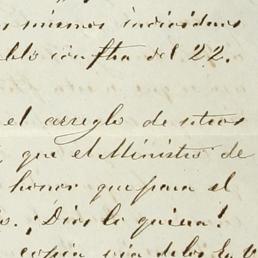 mismos individuos
con fha del 22.
el arreglo de otros
que el Ministro de
honor que para el
¡Dios lo quiera!
copia via de los